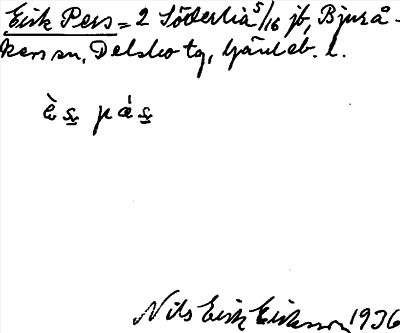 Eirk Pers = 2 Söderlia 5/16 jb, Bjurå-
kers sn, Delsbo tg, Gävleb. l.
è s p á s
Nils Eirk Eriksson 1936